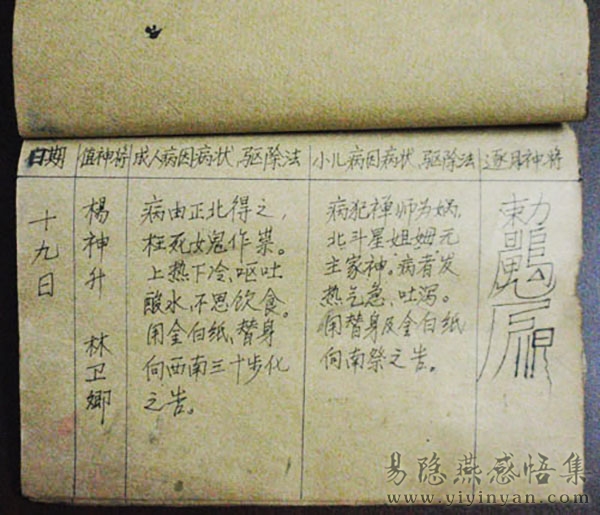 日期 值神将 成人病因病状、驱除法 小儿病因病状、驱除法 逐日神将
十九日
楊神升 林卫卿
病由正北得之，
枉死女鬼作祟。
上热下冷、呕吐
酸水、不思饮食。
用金白纸、替身
向西南三十步化
之吉。
病犯禅师为娲，
北斗星姐姆元
主家神。病者发
热气急、吐泻。
用替身及金白纸
向南祭之吉。
勅
易隐燕感悟集
www.yiyinyan.com